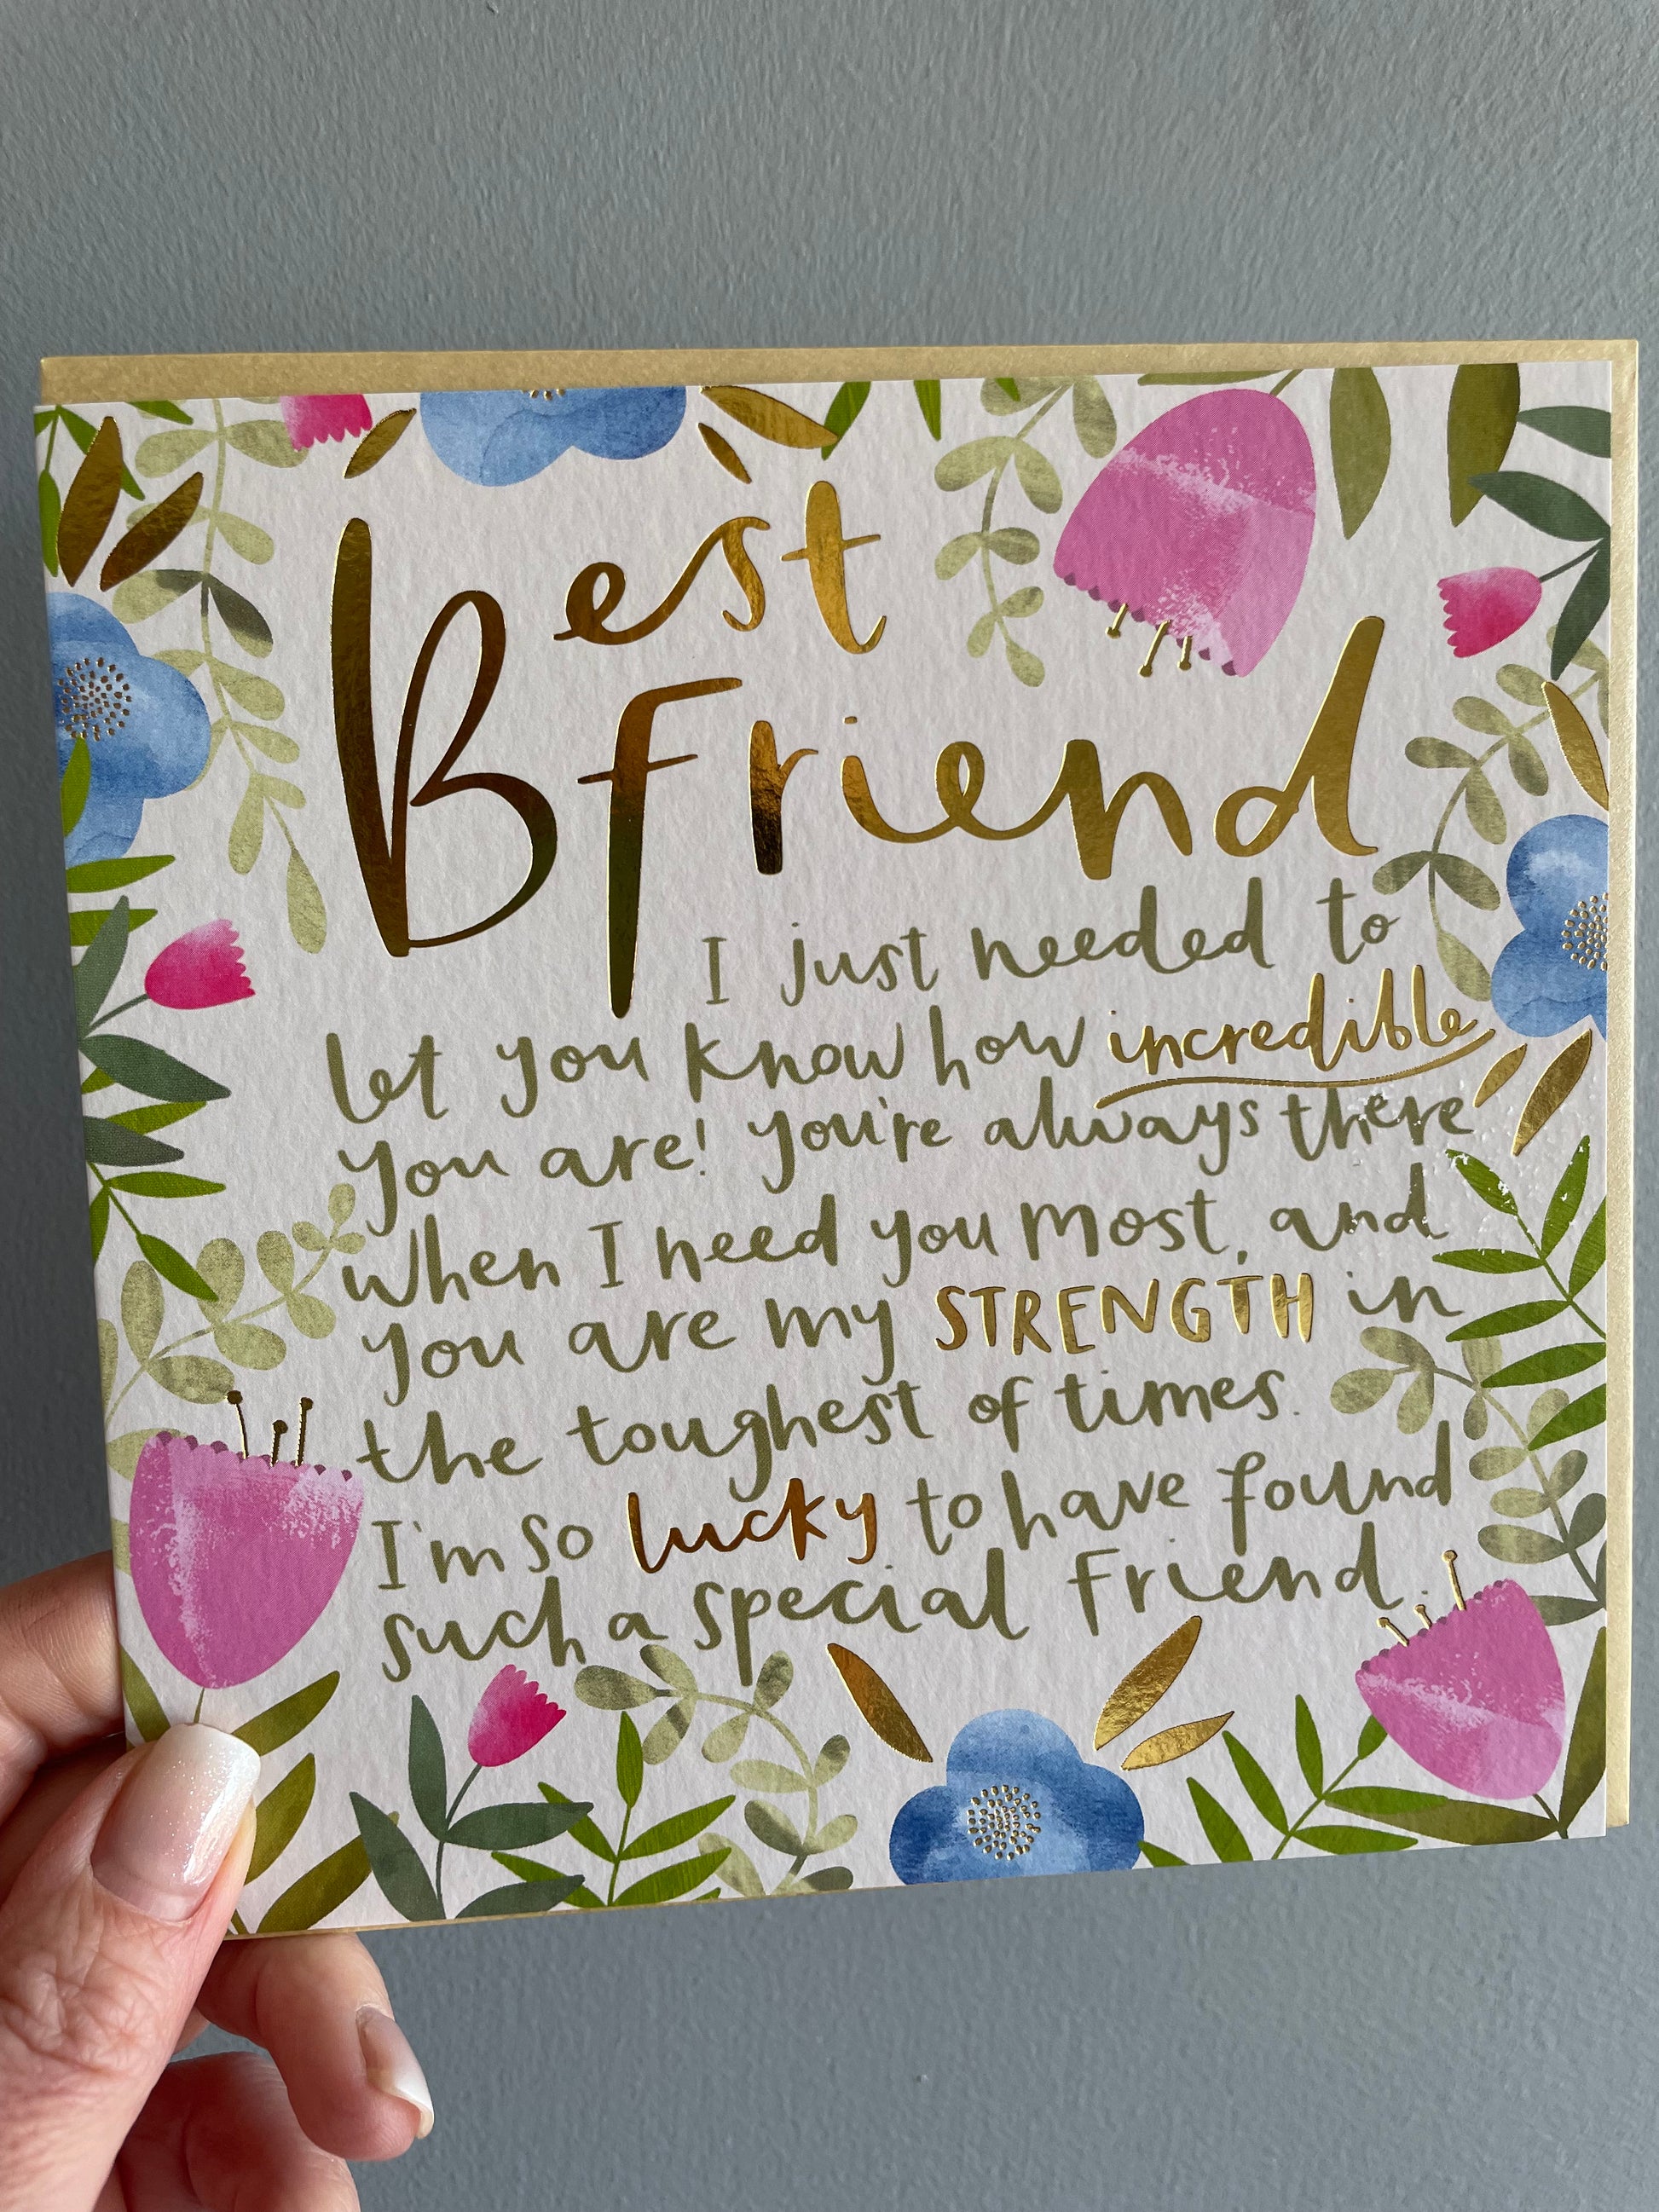 Best
Friend
I just needed to
let you know how incredible
you are! You're always there
when I need you most, and
you are my STRENGTH in
the toughest of times.
I'm so lucky to have found
such a special friend.